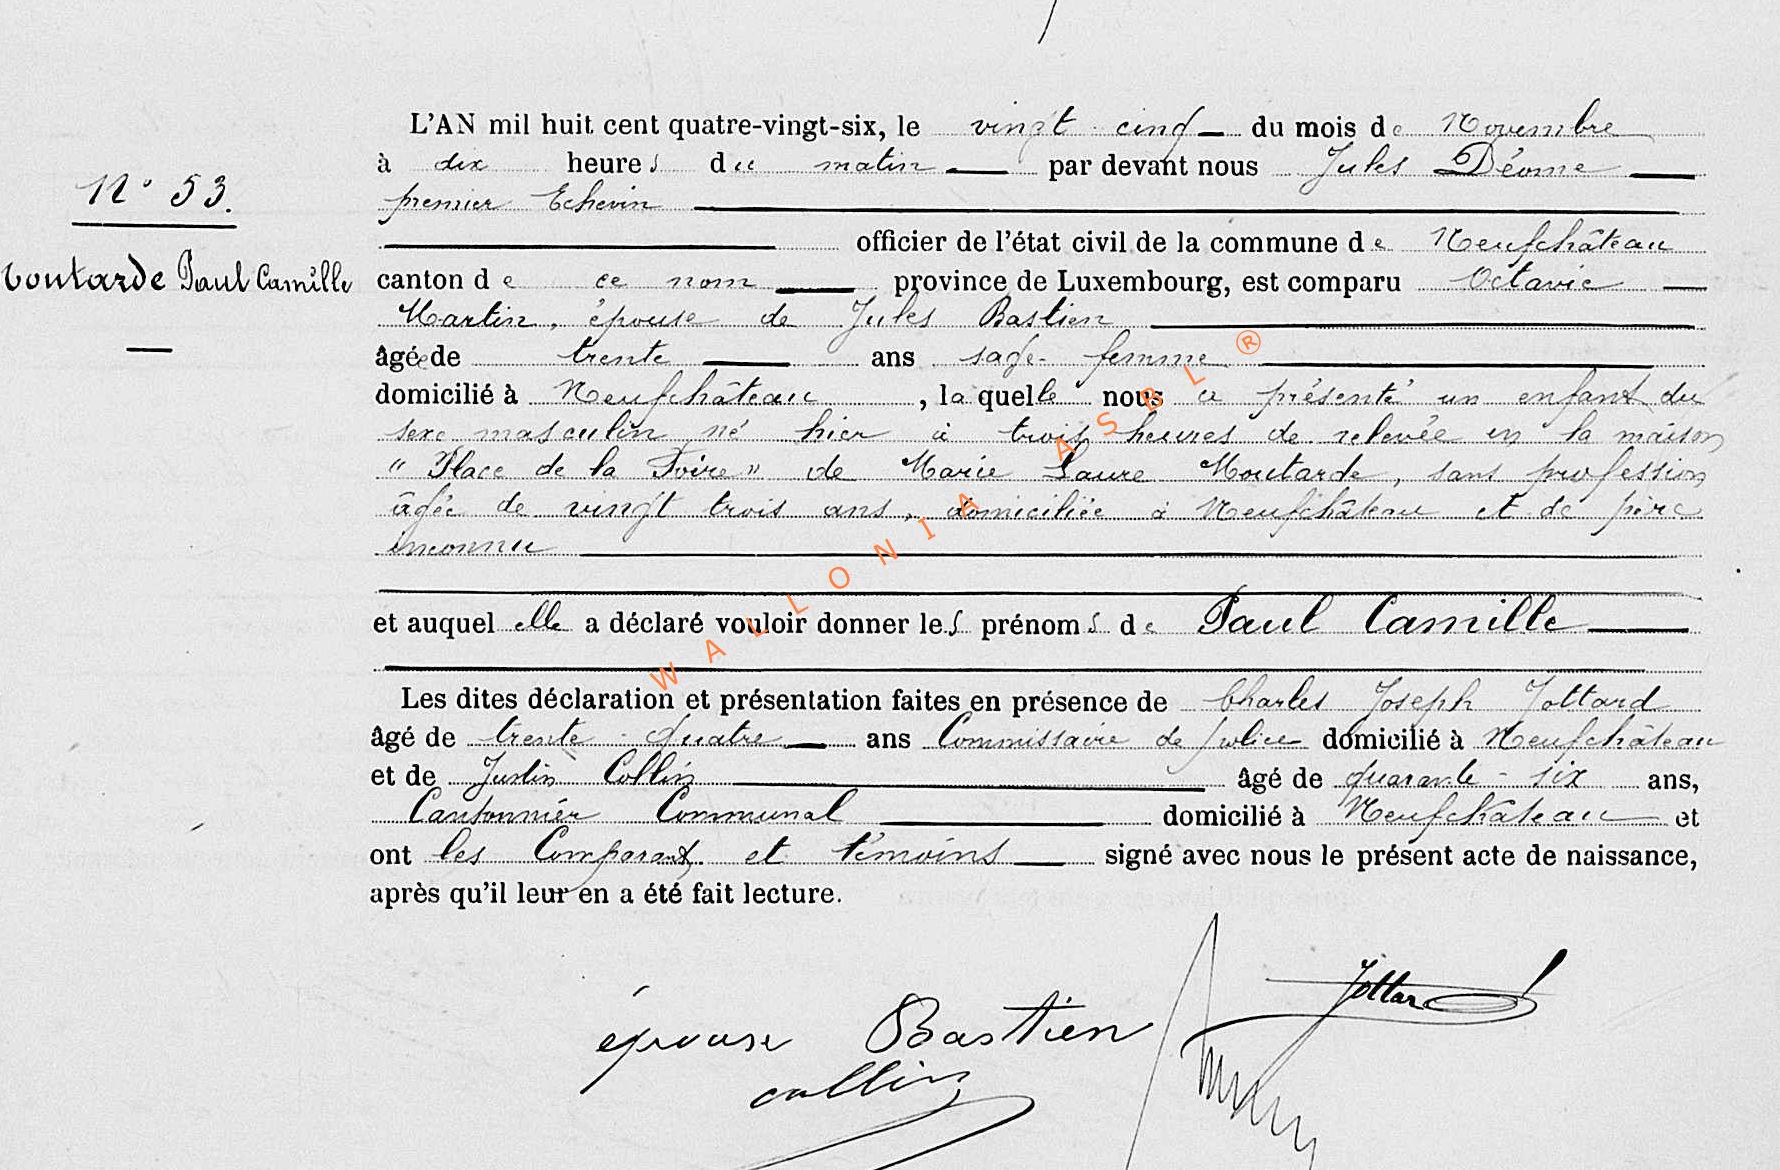 L'AN mil huit cent quatre-vingt-six, le vingt cinq du mois de Novembre
à dix heures du matin par devant nous Jules Déome
premier Echevin
officier de l'état civil de la commune de Neufchâteau
canton de ce nom province de Luxembourg, est comparu Octavie
Martin, épouse de Jules Bastien
âgée de trente ans sage-femme
domicilié à Neufchâteau, laquelle nous a présenté un enfant du
sexe masculin né hier à trois heures de relevée en la maison
"Place de la Foire" de Marie Laure Moutarde, sans profession
âgée de vingt trois ans, domiciliée à Neufchâteau et de père
inconnu
et auquel elle a déclaré vouloir donner les prénoms de Paul Camille
Les dites déclaration et présentation faites en présence de Charles Joseph Jottard
âgé de trente-quatre ans Commissaire de police domicilié à Neufchâteau
et de Justin Collin âgé de quarante-six ans,
Cantonnier Communal domicilié à Neufchâteau et
ont les Comparant et témoins signé avec nous le présent acte de naissance,
après qu'il leur en a été fait lecture.
N° 53.
outarde Paul Camille
Jottard
épouse Bastien
collin
WALLONIA ASBL ®